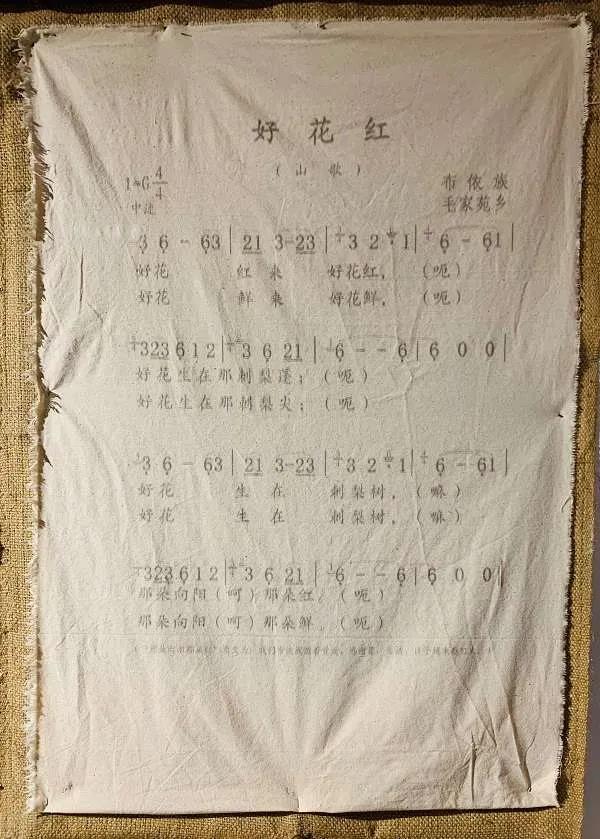 好花红
（山歌）
1=G 4/4
布依族
中速
毛家苑乡
3 6 - 63 | 21 3-23 | 3 2 · 1 | 6 - 61 |
好花 红来 好花红，（呃）
好花 鲜来 好花鲜，（呃）
323 6 1 2 | 3 6 21 | 6 - - 6 | 6 0 0 |
好花生在那刺梨蓬；（呃）
好花生在那刺梨尖；（呃）
3 6 - 63 | 21 3-23 | 3 2 · 1 | 6 - 61 |
好花 生在 刺梨树，（嘛）
好花 生在 刺梨树，（嘛）
323 6 1 2 | 3 6 21 | 6 - - 6 | 6 0 0 |
那朵向阳（呵）那朵红。（呃）
那朵向阳（呵）那朵鲜。（呃）